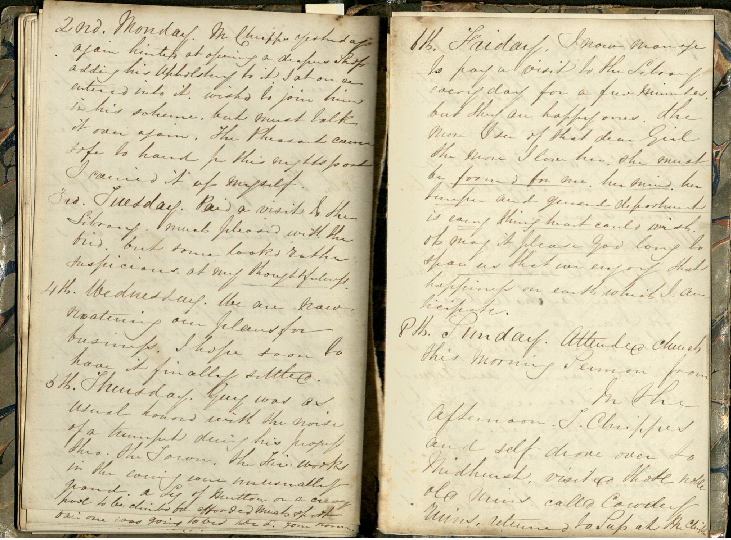 2nd. Monday. Mr Chippe yesterday
again hinted at opening a drapers shop
adding his Upholstery to it. I at once
entered into it. wished to join him
in his scheme. but must talk
it over again. The Pheasant came
safe to hand
I carried it up myself.
3rd. Tuesday. Paid a visit to the
Library. much pleased with the
bird. but some looks rather
suspicious. at my thoughtfulness
4th. Wednesday. We are now
maturing our plans for
business. I hope soon to
have it finally settled.
5th. Thursday. Guy was as
usual honored with the noise
of a trumpet during his
thro. the Town. the Fire works
in the evening were unusually
grand. a Leg of Mutton on a
pole to be climbed for afforded much sport
one was going to bed
6th. Friday. I now manage
to pay a visit to the Library
everyday for a few minutes.
but they are happy ones. the
more I see of that dear Girl
the more I love her. she must
be formed for me. her mind, her
temper and general deportment
is every thing that could wish.
oh may it please God long to
spare us that we enjoy that
happiness on earth which I an-
ticipate.
8th. Sunday. Attended church
this morning Sermon from
In the
afternoon. S. Chippes
and self drove over to
Midhurst, visited those noble
old ruins called Cowdry
Ruins. returned to Sup at Mr